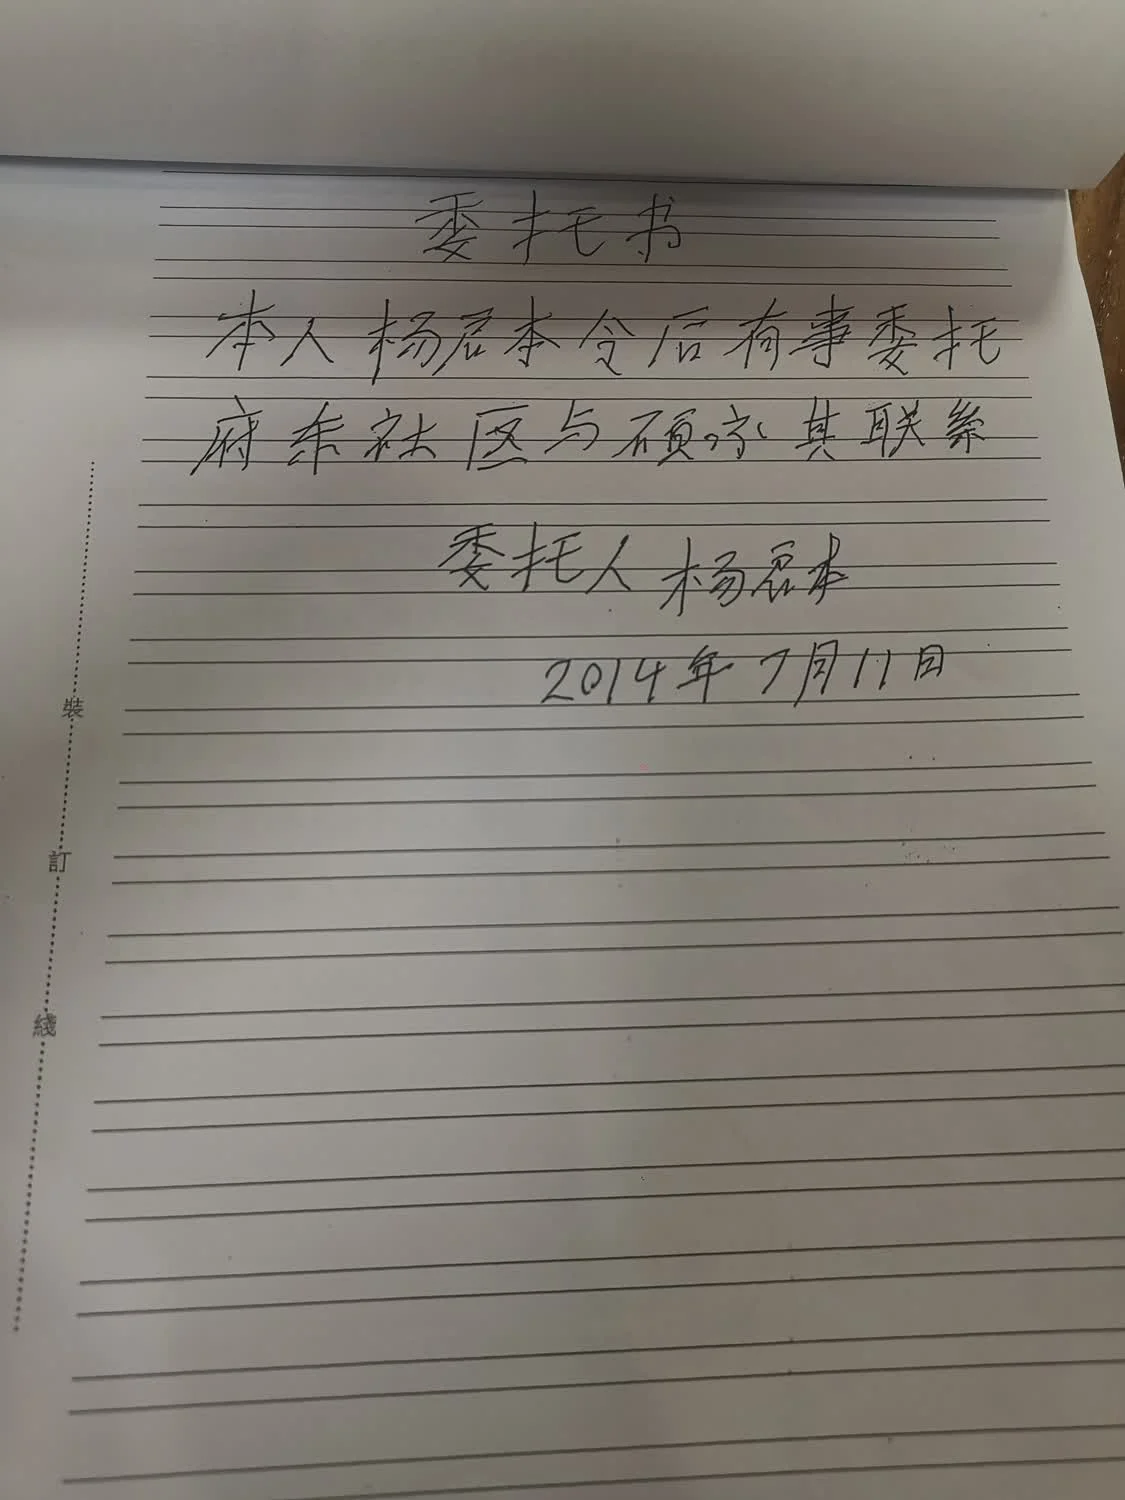 委托书
本人杨君本今后有事委托
府东社区与硕京其联系
委托人 杨君本
2014年7月11日
裝
訂
綫